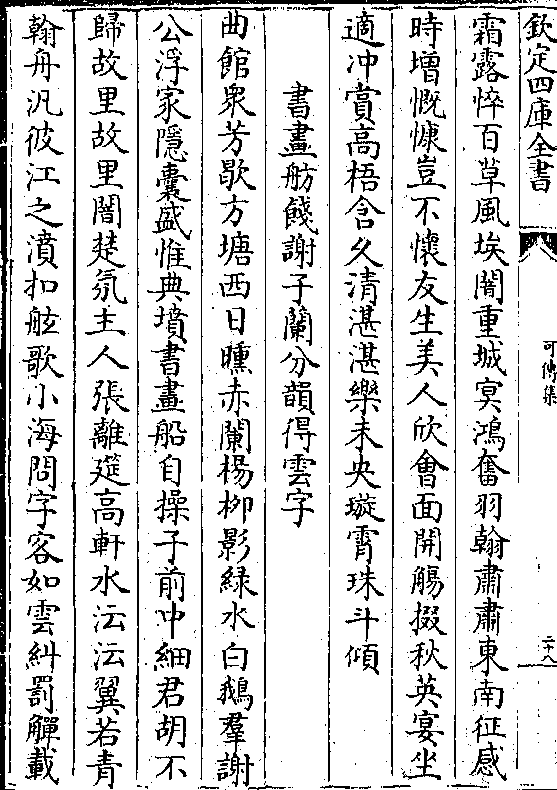 欽定四庫全書
可傳集
二十八
霜露悴百草風埃闇重城㝠鴻奮羽翰肅肅東南征感
時增慨慷豈不懷友生美人欣會面開觴掇秋英宴坐
適冲賞高梧含久清湛湛樂未央璇霄珠斗傾
書畫舫餞謝子蘭分韻得雲字
曲館衆芳歇方塘西日曛赤闌楊栁影緑水白鵝羣謝
公浮家隱囊盛惟典墳書畫船自操子前中細君胡不
歸故里故里闇楚氛主人張離筵高軒水沄沄翼若青
翰舟汎彼江之濆扣舷歌小海問字客如雲糾罰觶載